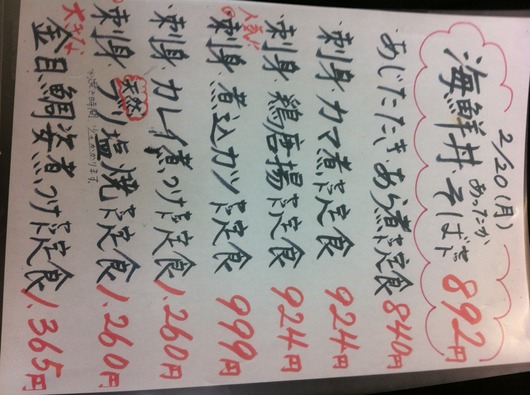 2/20(月)
海鮮丼、あったかそば付 892円
あじたたき、あら煮定食 840円
刺身、カマ煮定食 924円
刺身、鶏唐揚定食 924円
人気!!
刺身、煮込カツ定食 999円
刺身、カレイ煮つけ定食 1,260円
刺身、天然ブリ塩焼定食 1,260円
大きな
金目鯛姿煮つけ定食 1,365円